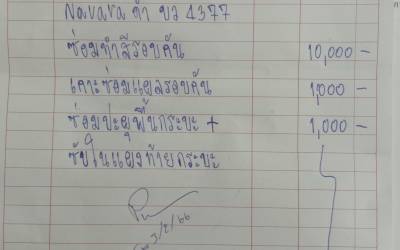 Navara ดำ บว 4377
ซ่อมทำสีรอบคัน 10,000 -
เคาะซ่อมแผลรอบคัน 1,000 -
ซ่อมปะผุพื้นกระบะ + 1,000 -
ซับในแผงท้ายกระบะ
3/2/66